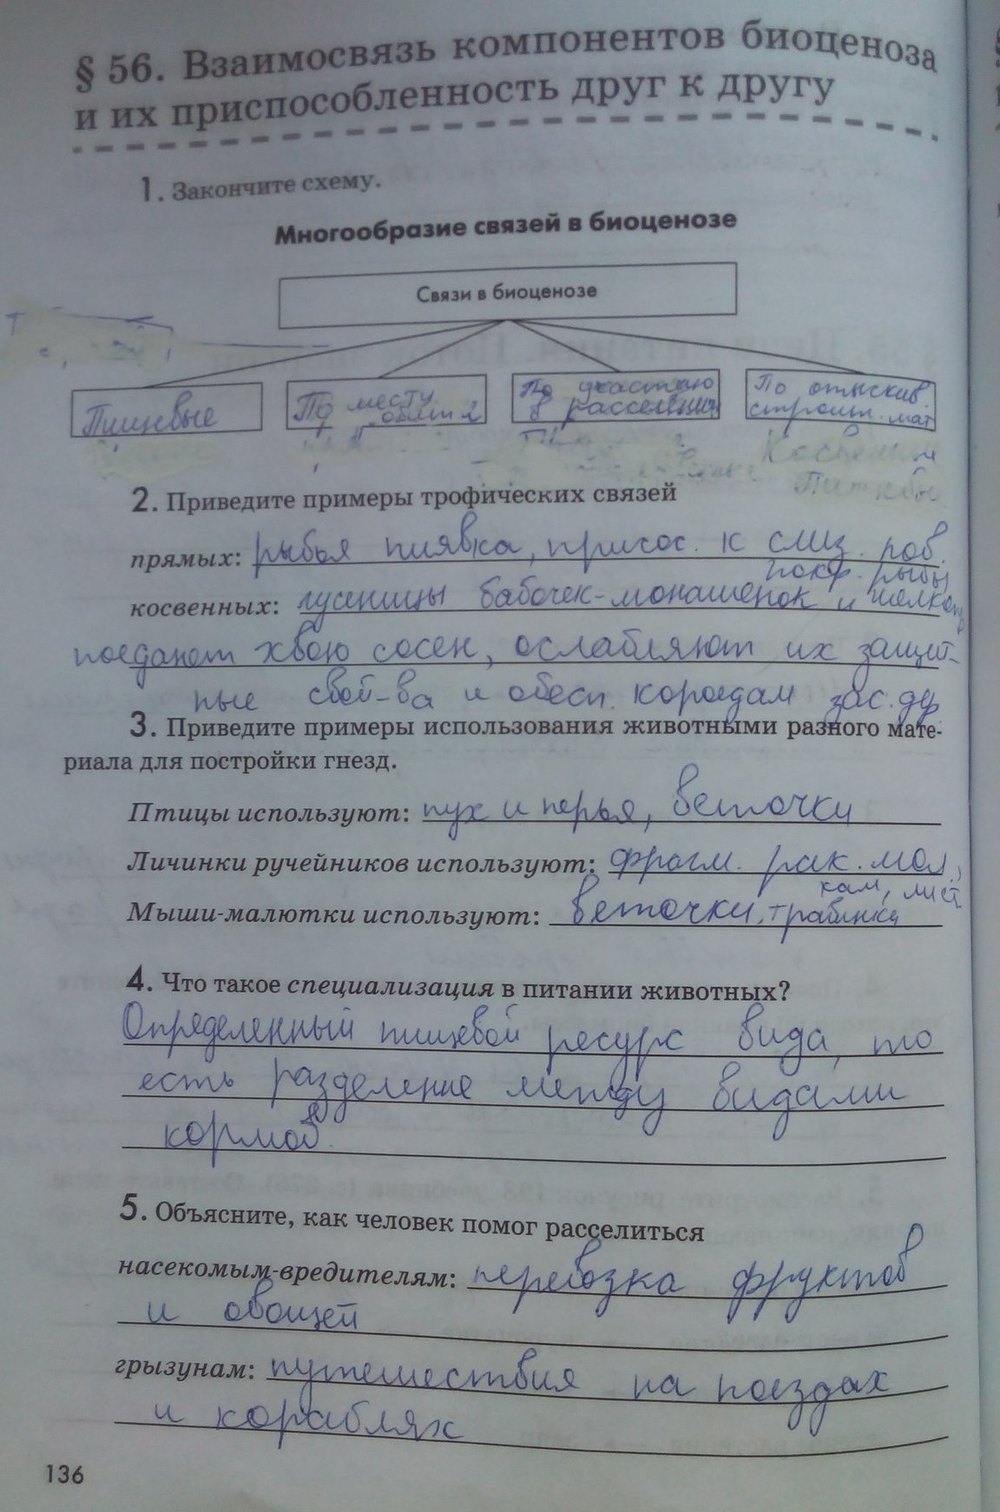 § 56. Взаимосвязь компонентов биоценоза
и их приспособленность друг к другу
1. Закончите схему.
Многообразие связей в биоценозе
Связи в биоценозе
Пищевые
По месту
обит-я
По участию
в расселении
По отыскив.
строит. мат
Косвенные
2. Приведите примеры трофических связей
прямых: рыбья пиявка, присос. к слиз. пов.
покр. рыбы
косвенных: гусеницы бабочек-монашенок и шелкопр
поедают хвою сосен, ослабляют их защит-
ные свой-ва и обесп. короедам зас. дер
3. Приведите примеры использования животными разного мате-
риала для постройки гнезд.
Птицы используют: пух и перья, веточки
Личинки ручейников используют: фрагм. рак. мол.,
кам, лист.
Мыши-малютки используют: веточки, травинки
4. Что такое специализация в питании животных?
Определенный пищевой ресурс вида, то
есть разделение между видами
кормов.
5. Объясните, как человек помог расселиться
насекомым-вредителям: перевозка фруктов
и овощей
грызунам: путешествия на поездах
и кораблях
136